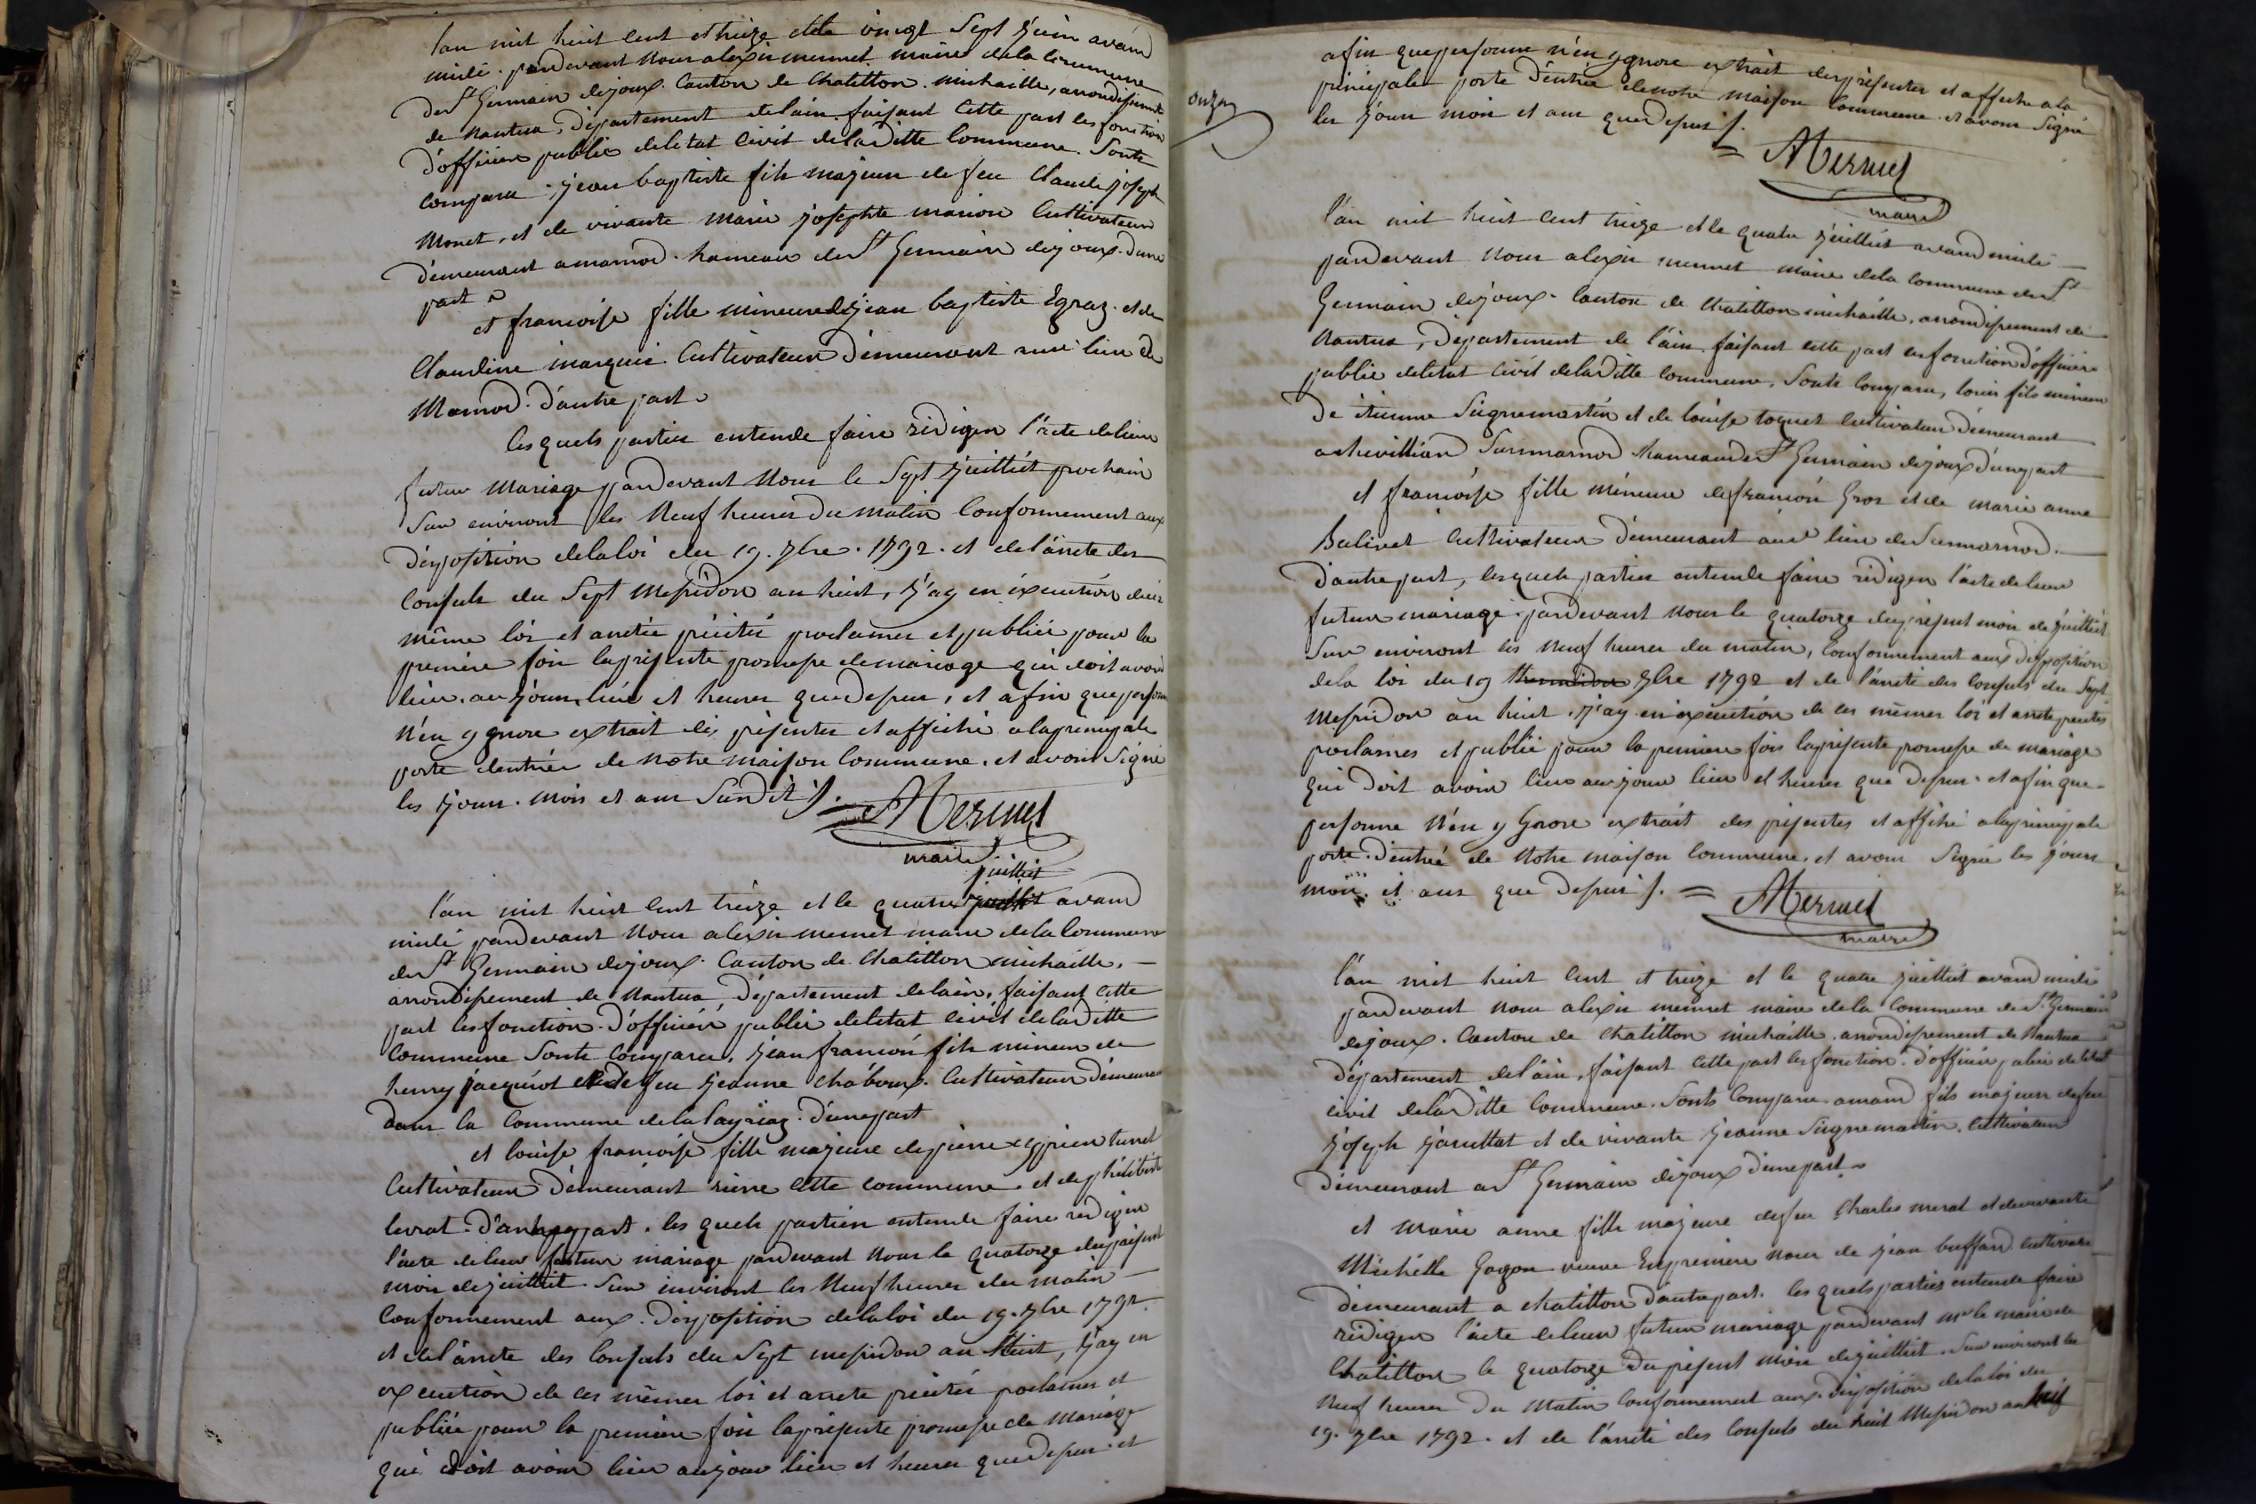 l'an mil huit cent et treize et le vingt Sept juin avand
midi. pardevant Nous alexis mermet maire dela Commune
de St Germain dejoux. Canton de Chatillon michaille, arrondissement
de Nantua, département delain faisant Cette part les fonction
d'officier public deletat Civil deladitte Commune. Sont
Comparu. jean baptiste fils majeur de feu Claude joseph
Monet, et de vivante marie josephte marion Cultivateur
demeurant a mamod. hameau de St Germain dejoux. dune
part
et francoise fille mineure dejean baptiste Egraz. et de
Claudine marquis Cultivateur demeurant au lieu de
Mamod. d'autre part
les quels partie entende faire rédiger l'acte deleur
futur Mariage pardevant Nous le Sept juilliet prochain
Sur environt les Neuf heures du matin Conformement aux
disposition delaloi du 19. 7bre. 1792. et de l'arreté des
Consuls du Sept messidor an huit, j'ay en éxecution des
même loi et arretée précité proclamer et publiée pour la
première fois laprésente promesse demariage qui doit avoir
lieu. au jour, lieu et heures que dessus, et afin que personne
n'en ygnore extrait des présentes et affiché alaprincipale
porte dentrée de notre maison Commune. et avons Signé
les jour. mois et ans Susdit ./.
AMermet
maire
juilliet
l'an mil huit cent treize et le quatre avand
midi pardevant Nous alexis mermet maire dela Commune
de St Germain dejoux. Canton de Chatillon michaille.
arrondissement de Nantua, département delain, faisant Cette
part les fonction. d'officier public deletat Civil deladitte
Commune Sont Comparu. jean francois fils mineur de
henry jacquiot et de feu jeanne chaboux. Cultivateur demeurant
dans la Commune dela laysiaz. d'une part
et louise francoise fille majeure depierre cyprien
Cultivateur demeurant cette commune. et de
levrat. d'autre part. les quels partien entende faire rediger
l'acte deleur futur mariage pardevant Nous le quatorze duprésent
mois dejuilliet. Sur environt les Neuf heures du matin
Conformement aux. disposition delaloi du 19. 7bre 1792.
et del'arreté des Consuls du Sept messidor an huit, j'ay en
execution de ces mêmes loi et arreté précités proclamer et
publiée pour la première fois laprésente promesse de Mariage
qui doit avoir lieu au jour lieu et heures que dessus. et
afin que personne n'en ygnore extrait des présentes et affiche a la
principale porte d'entrée denotre maison Commune. et avons Signé
les jour mois et ans que dessus ./.
AMermet
maire
l'an mil huit cent treize et le quatre juilliet avand midi
pardevant Nous alexis mermet maire dela commune de St
Germain dejoux. Canton de Chatillon michaille, arrondissement de
Nantua, département de l'ain faisant cette part les fonction d'officier
public deletat Civil deladitte Commune, Sont Comparu, louis fils mineur
de étienne Seignemartin et de louise Cultivateur demeurant
a chevillian Surmarnod hameau de St Germain dejoux d'une part
et francoise fille mineure defrancois Gros et de marie anne
Balivet Cultivateur demeurant au lieu de Surmarnod.
d'autre part, lesquels partien entende faire rédiger l'acte deleur
futur mariage. pardevant Nous le quatorze duprésent mois de juilliet
Sur environt les neuf heures du matin, Conformement aux disposition
dela loi du 19 7bre 1792 et de l'arreté des Consuls du Sept
Messidor an huit. j'ay en execution de ces mêmes loi et arreté precités
proclames et publié pour la premiere fois laprésente promesse de mariage
qui doit avoir lieu au jour lieu et heures que dessus. et afin que
personne n'en ygnore extrait des présentes et affiché alaprincipale
porte. d'entrée de Notre maison Commune. et avons Signé les jour
mois. et ans que dessus ./.
AMermet
maire
l'an mil huit cent et treize et le quatre juilliet avand midi
pardevant Nous alexis mermet maire dela Commune de St Germain
dejoux. Canton de Chatillon michaille arrondissement de Nantua
département del'ain, faisant cette part les fonction. d'officier public deletat
civil deladitte Commune. Sont Comparu amand fils majeur defeu
joseph et de vivante jeanne Seignemartin. Cultivateur
demeurant a St Germain dejoux d'une part
et marie anne fille majeure defeu Charles merat et devivante
Michelle Gojon veuve Enpremiere noces de jean buffard cultivateur
demeurant a chatillon d'autre part. les quels parties entende faire
rédiger l'acte deleur futur mariage pardevant mr le maire de
Chatillon le quatorze du présent mois dejuilliet. Sur environt les
Neuf heures du Matin Conformement aux. disposition delaloi du
19. 7bre 1792. et de l'arreté des Consuls du huit Messidor an huit